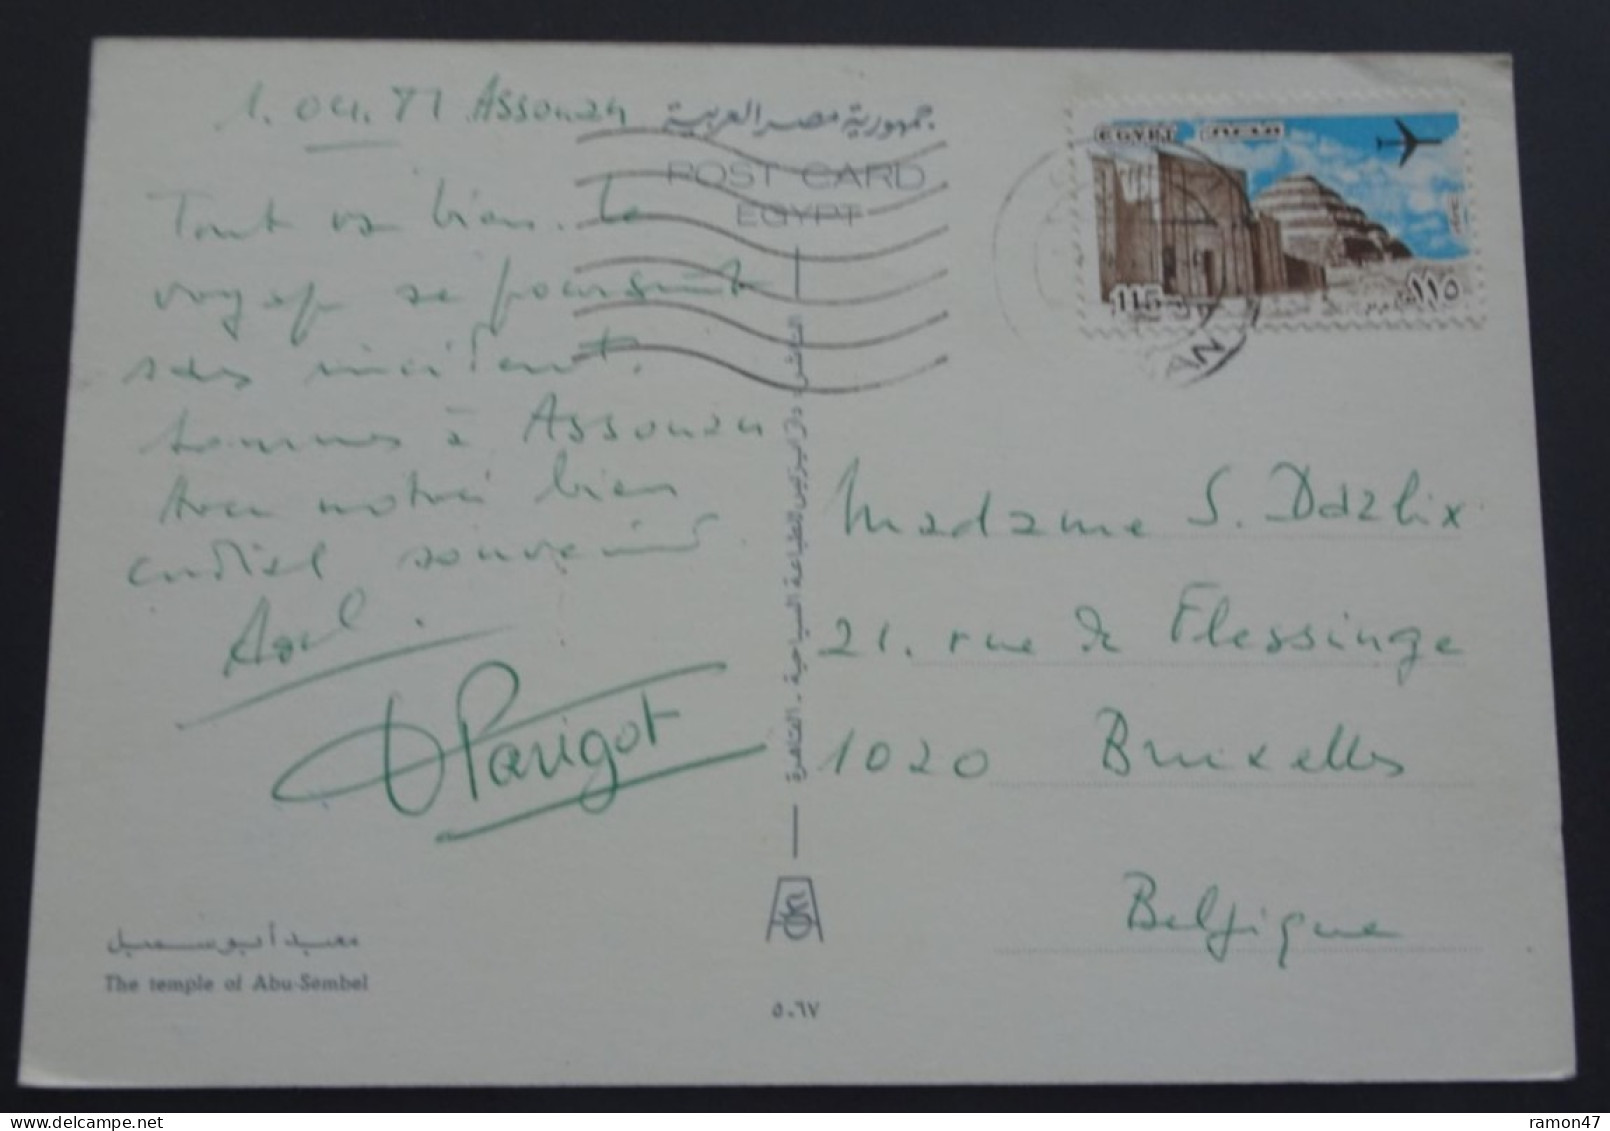 1. 04. 81 Assouan
Tout va bien. Le
voyage se poursuit
sans incident.
Sommes à Assouan
Avec notre bien
cordial souvenir
Parigot
جمهورية مصر العربية
POST CARD
EGYPT
EGYPT مصر
115 ١١٥
Madame S. Dazlix
21. rue de Flessinge
1020 Bruxelles
Belgique
معبد أبو سمبل
The temple of Abu-Sembel
٥٠٦٧
ramon47